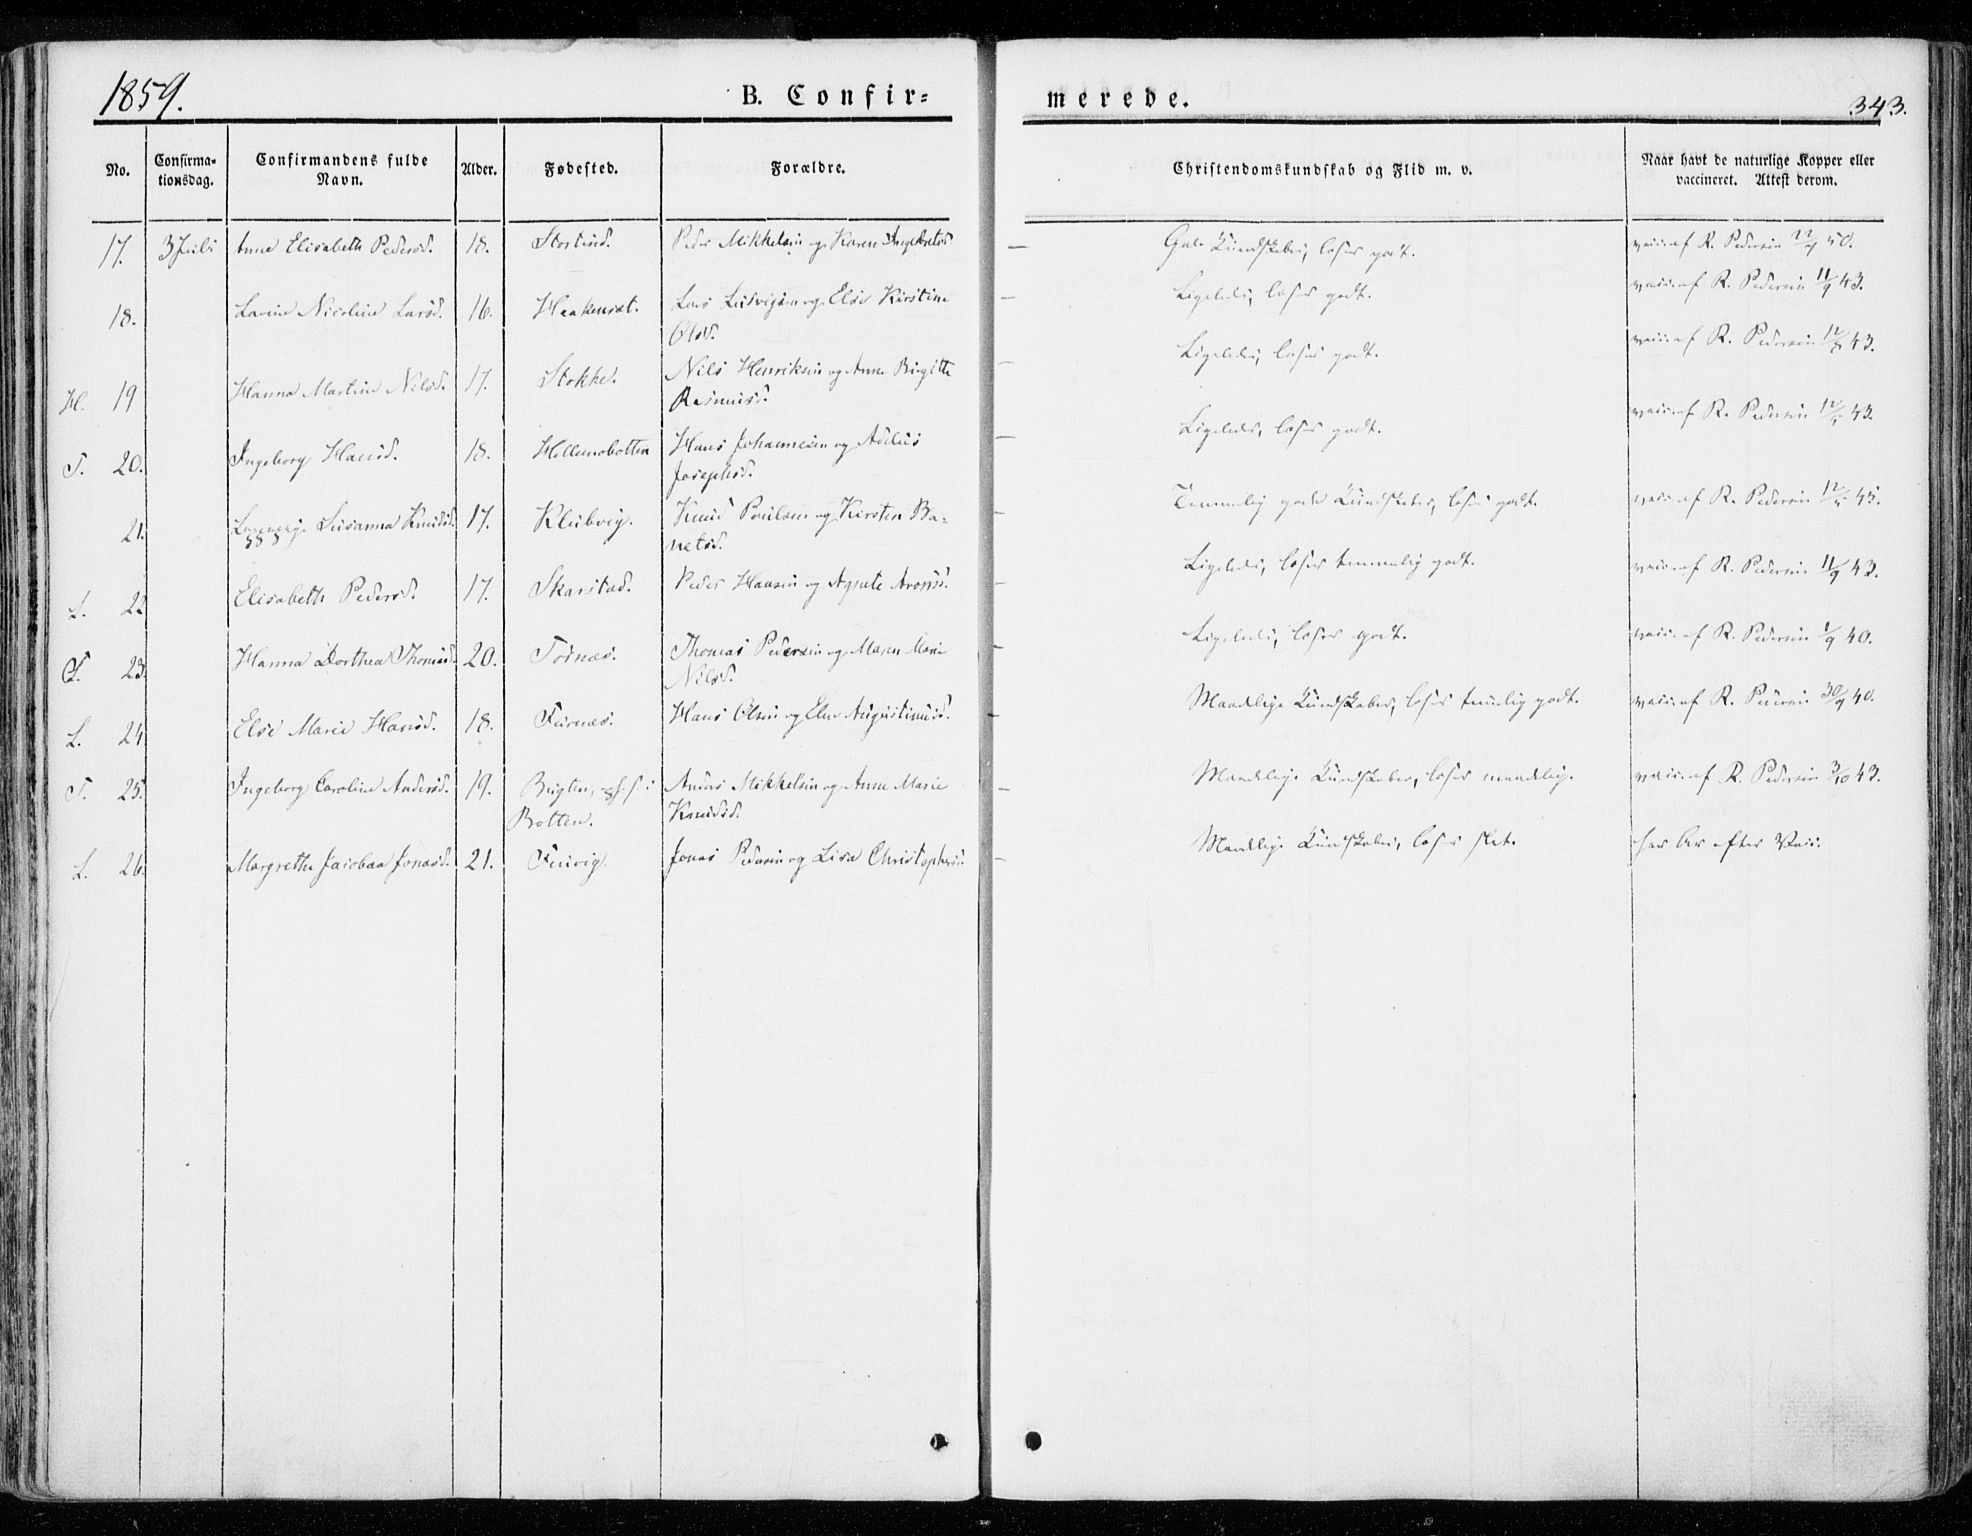 1859.
B. Confir=
merede.
343.
No.
Confirma=
tionsdag.
Confirmandens fulde
Navn.
Alder.
Fødested.
Forældre.
Christendomskundskab og Flid m. v.
Naar havt de naturlige Kopper eller
vaccineret. Attest derom.
17. 3 Juli Anne Elisabeth Pedersd. 18. Storlind. Peder Mikkelsen og Karen Angelætsd — Gode Kundskaber, læser godt. vacc. af R. Pedersen 50.
18. Lavine Nicoline Larsd. 16. Haakenset. Lars Ludvigsen og Else Kirstine
Olsd.
— Ligeledes, læser godt. vacc. af R. Pedersen 11/9 43.
H. 19 Hanna Martine Nilsd. 17. Stokke. Nils Henriksen og Anne Birgitte
Rasmusd.
— Ligeledes, læser godt. vacc. af R. Pedersen 43.
T. 20. Ingeborg Hansd. 18. Hellemobotten Hans Johannesen og
Josephsd.
— Ligeledes, læser godt. vacc. af R. Pedersen 43.
21. Susanna Knudsd. 17. Klubvig. Knud Poulsen og Kirsten Ba-
netsd.
— Temmelig gode Kundskaber, læser godt. vacc. af R. Pedersen 43.
L. 22 Elisabeth Pedersd. 17. Skarstad. Peder Hansen og Agnete Aronsd. — Ligeledes, læser temmelig godt. vacc. af R. Pedersen 11/9 43.
T. 23. Hanna Dorthea Thomasd. 20. Tornæs. Thomas Pedersen og Maren Marie
Nilsd.
— Ligeledes, læser godt. vacc. af R. Pedersen 1/9 40.
L. 24 Else Marie Hansd. 18. Furnæs. Hans Olsen og Elen Augustinusd. — Maadelige Kundskaber, læser temlig godt. vacc. af R. Pedersen 30/9 40.
T. 25. Ingeborg Caroline Andersd. 19.
Botten.
Anders Mikkelsen og Anne Marie
Knudsd.
— Maadelige Kundskaber, læser maadelig. vacc. af R. Pedersen 3/10 43.
L. 26. Margrethe Jacobaa Jonasd. 21. Jonas Pedersen og Lisa Christophersd. — Maadelige Kundskaber, læser slet. har Ar efter Vacc.